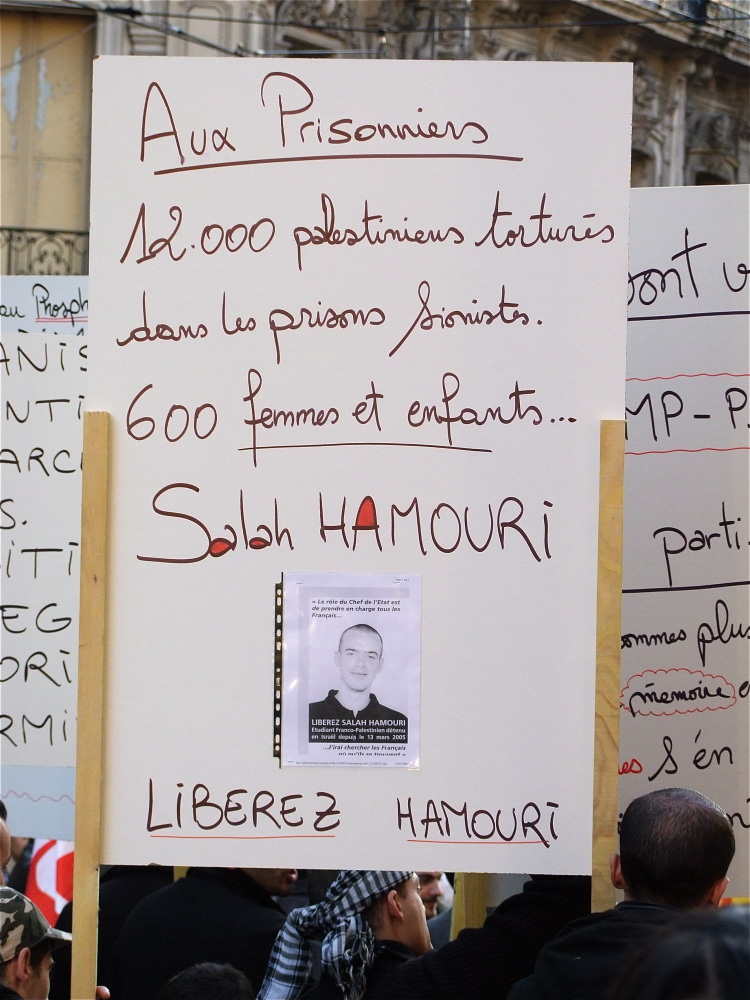 Aux Prisonniers
12.000 palestiniens torturés
dans les prisons sionistes.
600 femmes et enfants...
Salah HAMOURI
« Le rôle du Chef de l'Etat est
de prendre en charge tous les
Français...
LIBEREZ SALAH HAMOURI
Etudiant Franco-Palestinien détenu
en Israël depuis le 13 mars 2005
...J'irai chercher les Français
où qu'ils se trouvent »
LiBEREZ HAMOURi
au Phosph
ANiS
NTi
ARC
S.
iTi
EG
ORi
RMi
sont v
MP-P
parti
sommes plus
memoire
s'en